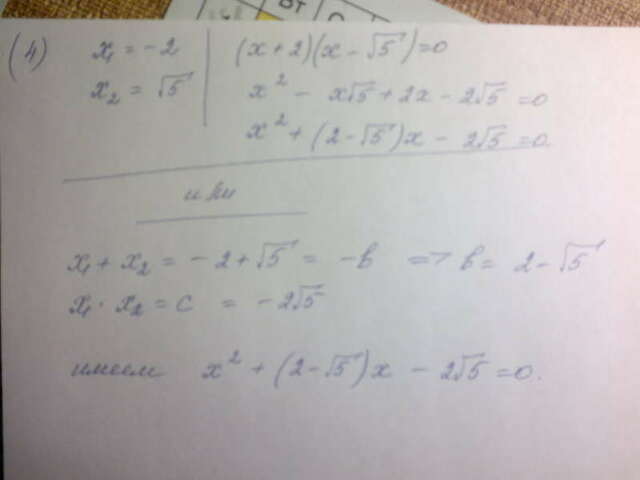 (4) x₁ = -2 | (x+2)(x-√5)=0
x₂ = √5 | x² - x√5 + 2x - 2√5 = 0
x² + (2-√5)x - 2√5 = 0
или
x₁ + x₂ = -2+√5 = -b => b = 2-√5
x₁ · x₂ = c = -2√5
имеем x² + (2-√5)x - 2√5 = 0.